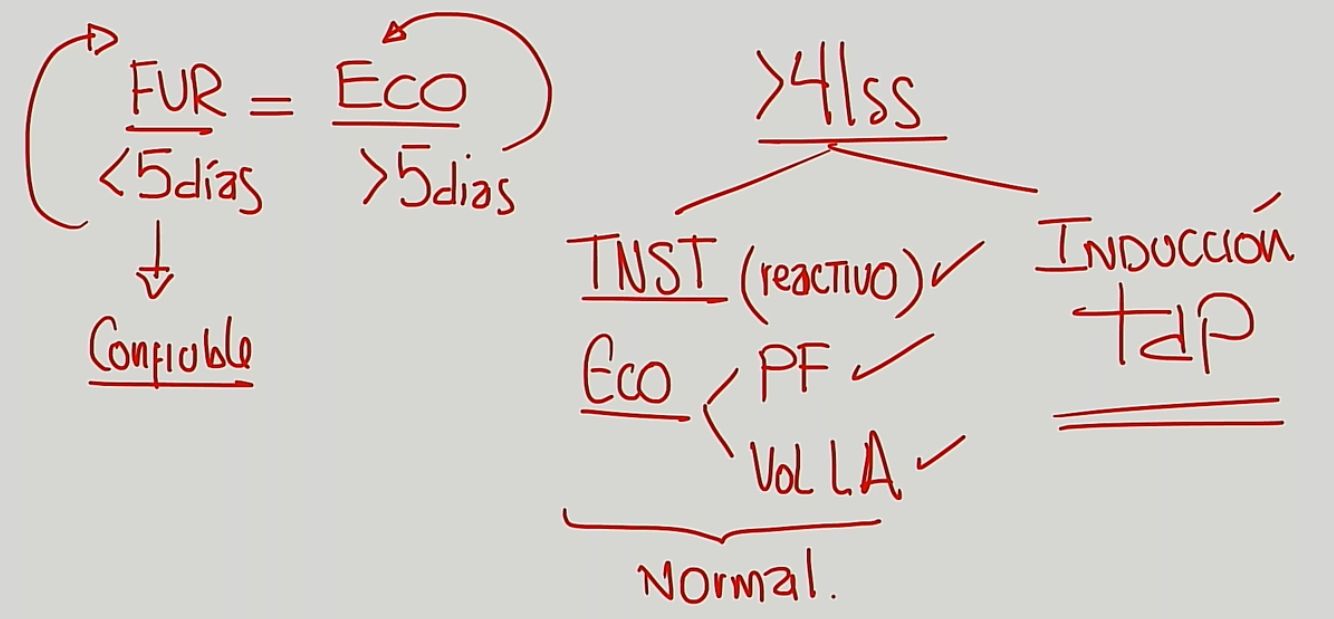 FUR = Eco
<5días >5dias
Confiable
>41ss
TNST (reactivo)
Eco
PF
Vol LA
Normal.
INDUCCIÓN
tdp